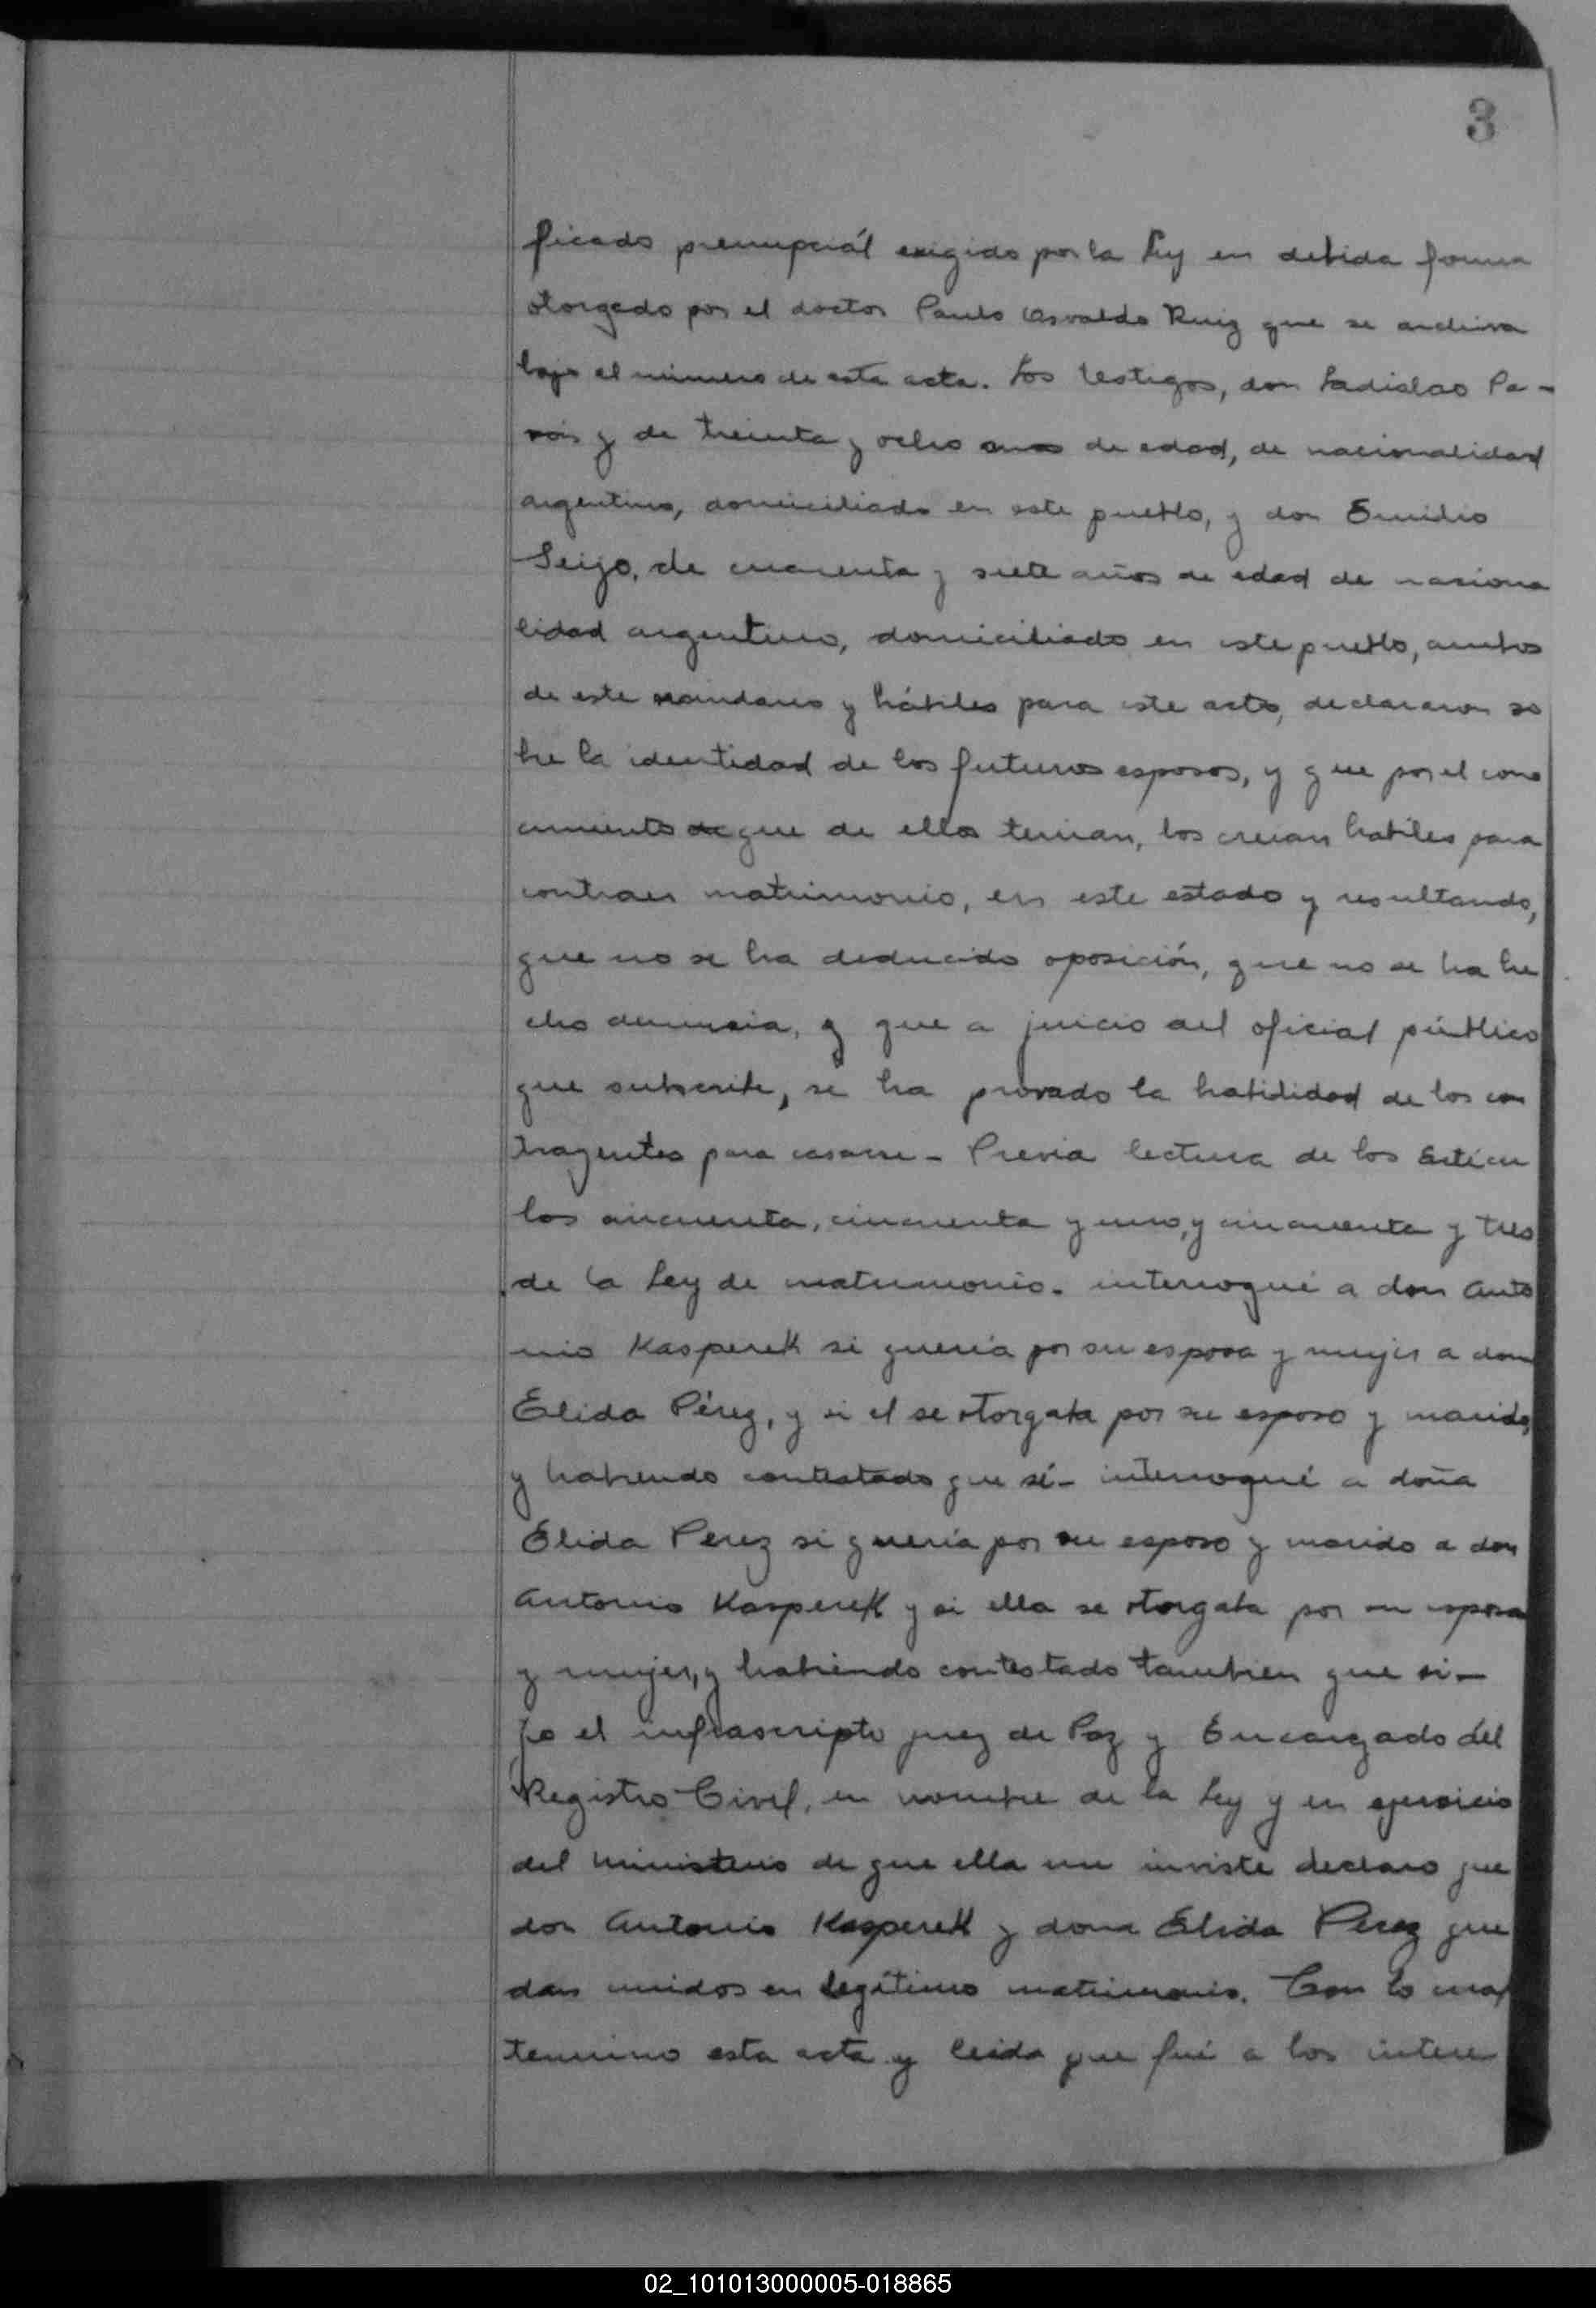 3
ficado prenupciál exigido por la Ley en debida forma
otorgado por el doctor Paulo Osvaldo Ruiz que se archiva
bajo el número de esta acta. Los testigos, don Ladislao Pa-
y de treinta y ocho anos de edad, de nacionalidad
argentino, domiciliado en este pueblo, y don Emidio
Seijo, de cuarenta y siete años de edad de naciona
lidad argentino, domiciliado en este pueblo, ambos
de este y hábiles para este acto, declararon so
bre la identidad de los futuros esposos, y que por el cono
cimiento de que de ellos tenian, los creian habiles para
contraer matrimonio, en este estado y resultando,
que no se ha deducido oposición, que no se ha he
cho denuncia, y que a juicio del oficial público
que subscribe, se ha provado la habilidad de los con
trayentes para casarse - Previa lectura de los Articu
los cincuenta, cincuenta y uno, y cincuenta y tres
de la Ley de matrimonio. interrogué a don Anto
nio Kasperek si quería por su esposa y mujer a dona
Elida Pérez, y si el se otorgaba por su esposo y marido,
y habiendo contestado que sí - interrogué a doña
Elida Perez si quería por su esposo y marido a don
Antonio Kasperek y si ella se otorgaba por su esposa
y mujer, y habiendo contestado tambien que si -
Yo el infrascripto juez de Paz y Encargado del
Registro Civil, en nombre de la Ley y en ejersicio
del ministerio de que ella me inviste declaro que
don Antonio Kasperek y dona Elida Perez que
dan unidos en legítimo matrimonio. Con lo cual
termino esta acta y leida que fué a los intere
02_101013000005-018865